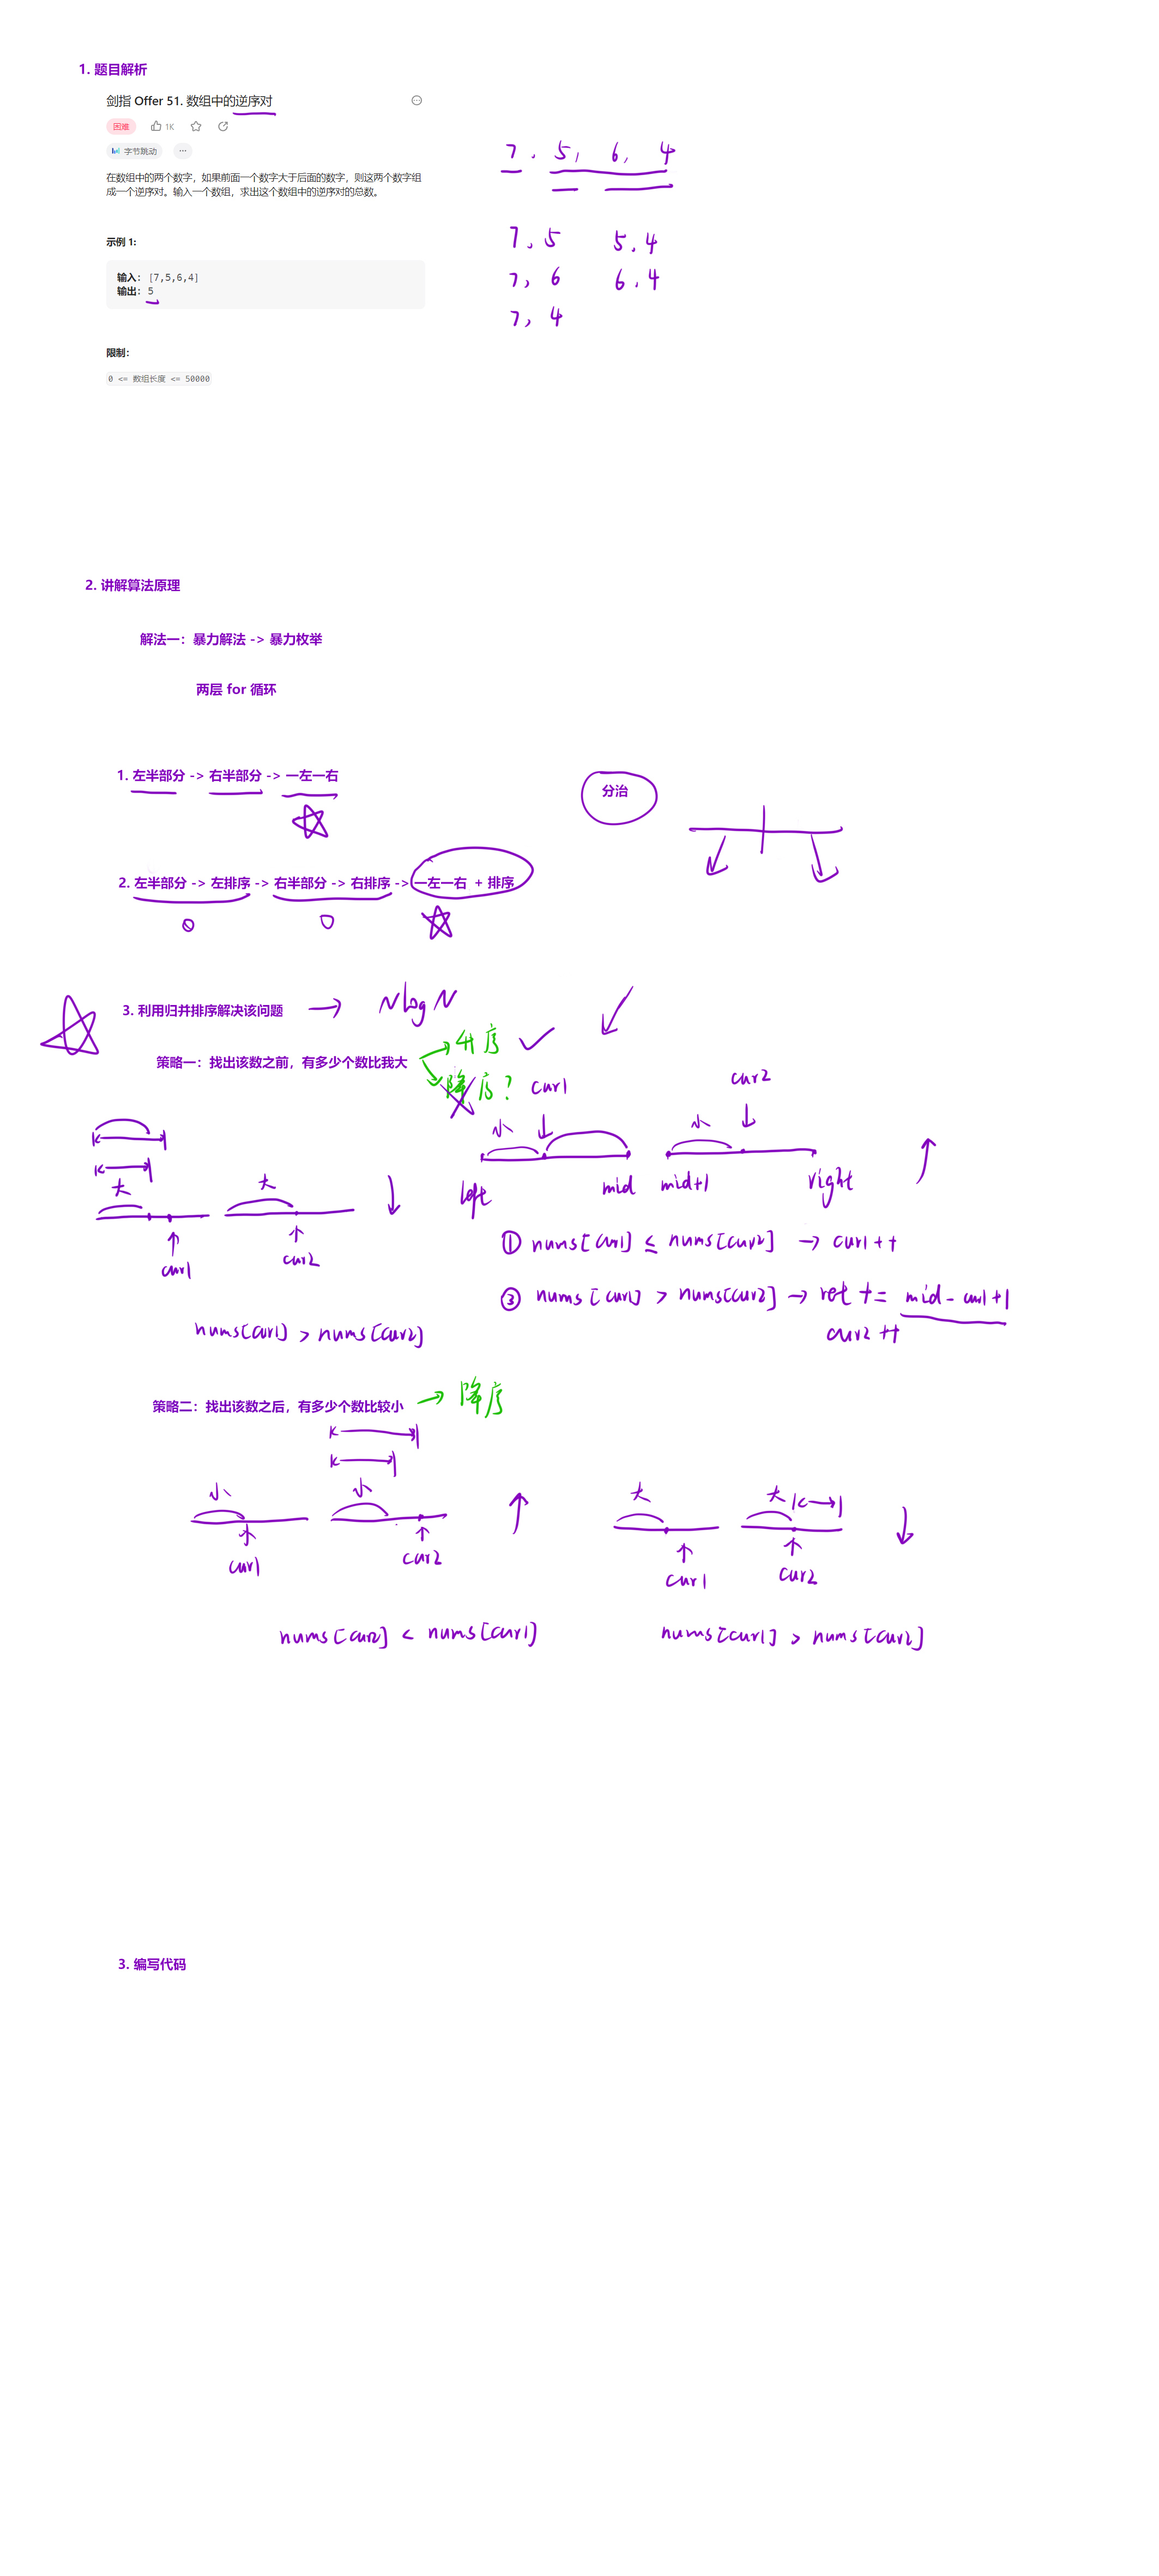 1. 题目解析
剑指 Offer 51. 数组中的逆序对
困难 1K
字节跳动 ...
在数组中的两个数字，如果前面一个数字大于后面的数字，则这两个数字组
成一个逆序对。输入一个数组，求出这个数组中的逆序对的总数。
示例 1:
输入: [7,5,6,4]
输出: 5
限制：
0 <= 数组长度 <= 50000
7, 5, 6, 4
7, 5 5, 4
7, 6 6, 4
7, 4
2. 讲解算法原理
解法一：暴力解法 -> 暴力枚举
两层 for 循环
1. 左半部分 -> 右半部分 -> 一左一右
分治
2. 左半部分 -> 左排序 -> 右半部分 -> 右排序 -> 一左一右 + 排序
3. 利用归并排序解决该问题 → NlogN
策略一：找出该数之前，有多少个数比我大
升序 ✓
降序？
cur1 cur2
小 小
left mid mid+1 right
大 大
cur1 cur2
① nums[cur1] ≤ nums[cur2] → cur1++
② nums[cur1] > nums[cur2] → ret += mid - cur1 + 1
cur2++
nums[cur1] > nums[cur2]
策略二：找出该数之后，有多少个数比较小 → 降序
小 小 大 大
cur1 cur2 cur1 cur2
nums[cur2] < nums[cur1] nums[cur1] > nums[cur2]
3. 编写代码